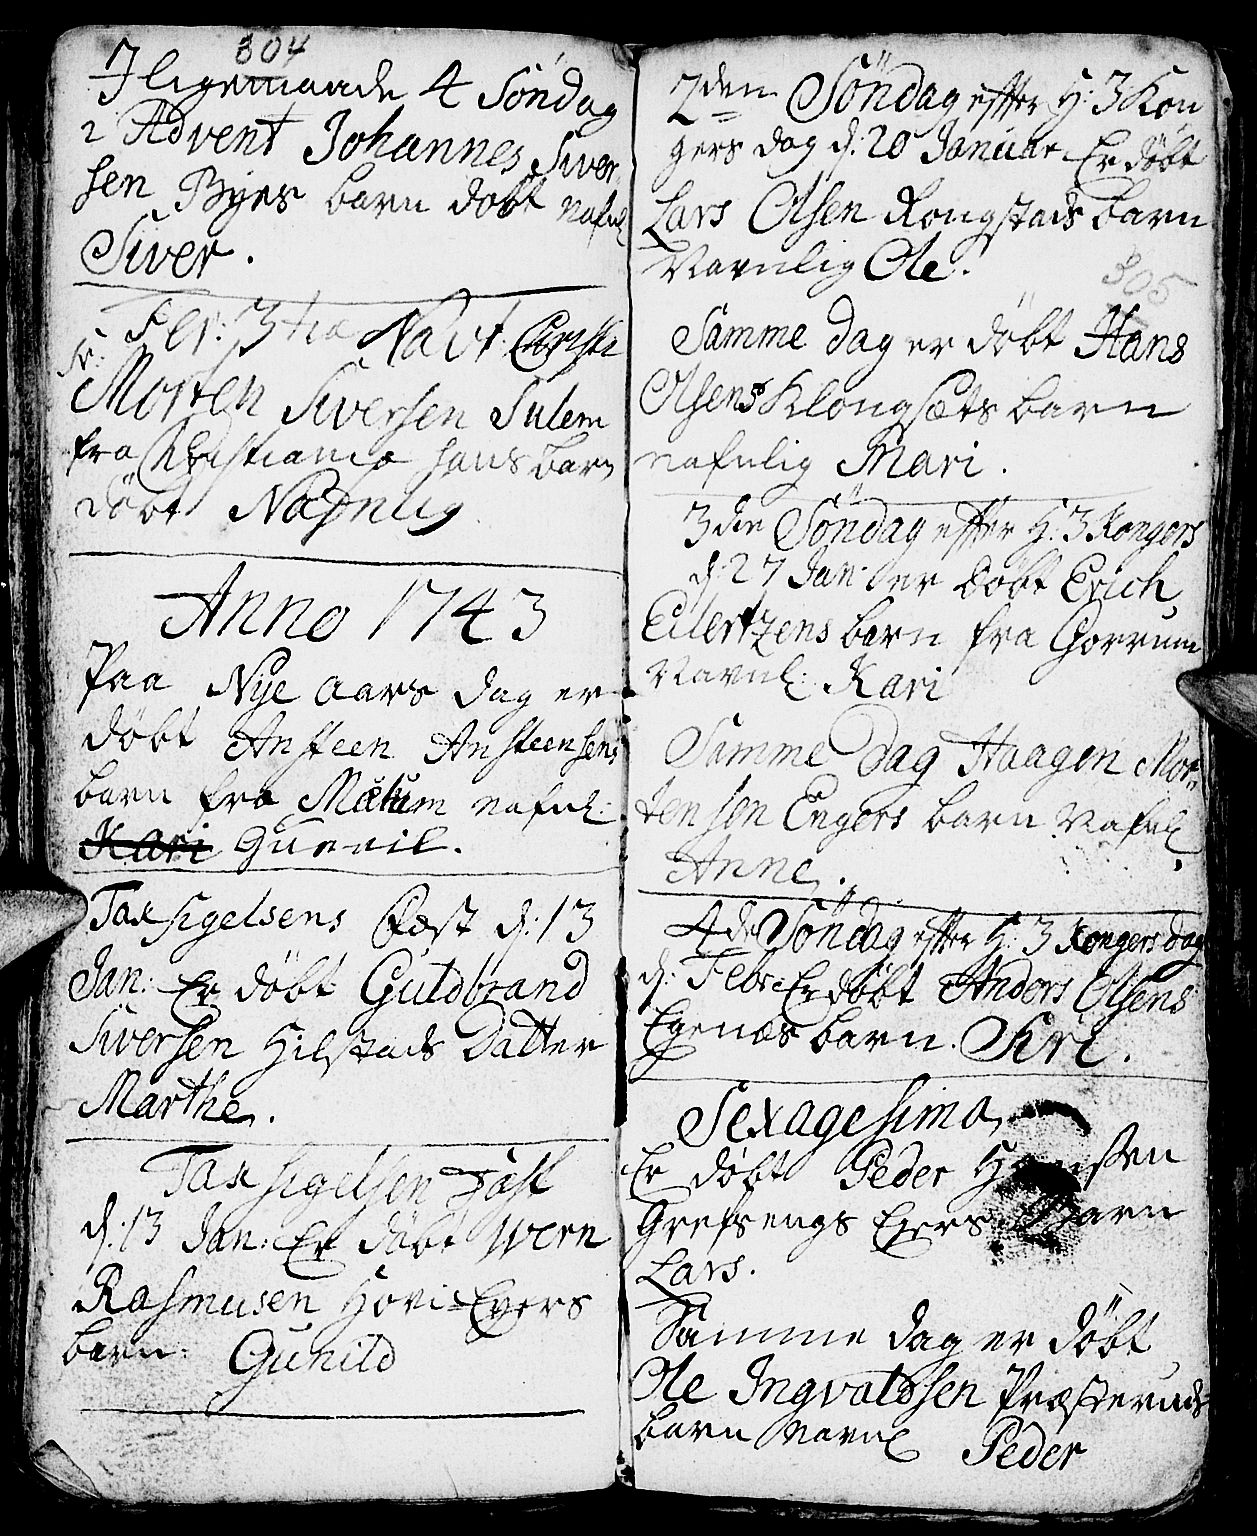 304
Jligemaade 4 Söndag
i Advent Johannes Siver
sen Byes barn döbt nafnl
Siver.
Fer: 3tia Nativ: Christi
Sr: Morten Siversen Sulem
fra Christiania hans barn
döbt Nafnlig
Anno 1743
Paa Nye aars dag er
döbt Ansteen Ansteensens
barn fra Mælum nafnl:
Kari Gunnil.
Tax sigelsens Fæst d: 13
Jan: Er döbt Guldbrand
Siversen Hilstads Datter
Marthe.
Tax sigelsen Fæst
d: 13 Jan: Er döbt Iver
Rasmusen Hovi-Eyers
barn: Gunild
2den Söndag effter H: 3 Kon
gers dag d: 20 Januar Er döbt
Lars Olsen Rongstads barn
Navnlig Ole.
305
Samme dag er döbt Hans
Olsens Klongsæts barn
nafnlig Mari.
3die Söndag effter H: 3 Kongers
d: 27 Jan: er döbt Erich
Eilertzens barn fra Gorrum
Navnl: Kari
Samme dag Haagen Mor-
tensen Engers barn Nafnl
Anne.
4de Söndag effter H: 3 Kongers dag
d: Febr: Er döbt Anders Olsens
Egenæs barn. Siri.
Sexagesima,
Er döbt Peder Hansen
Grefsengs Eyers Barn
Lars.
Samme dag er döbt
Ole Ingvaldsen Præsteruds
barn navnl Peder